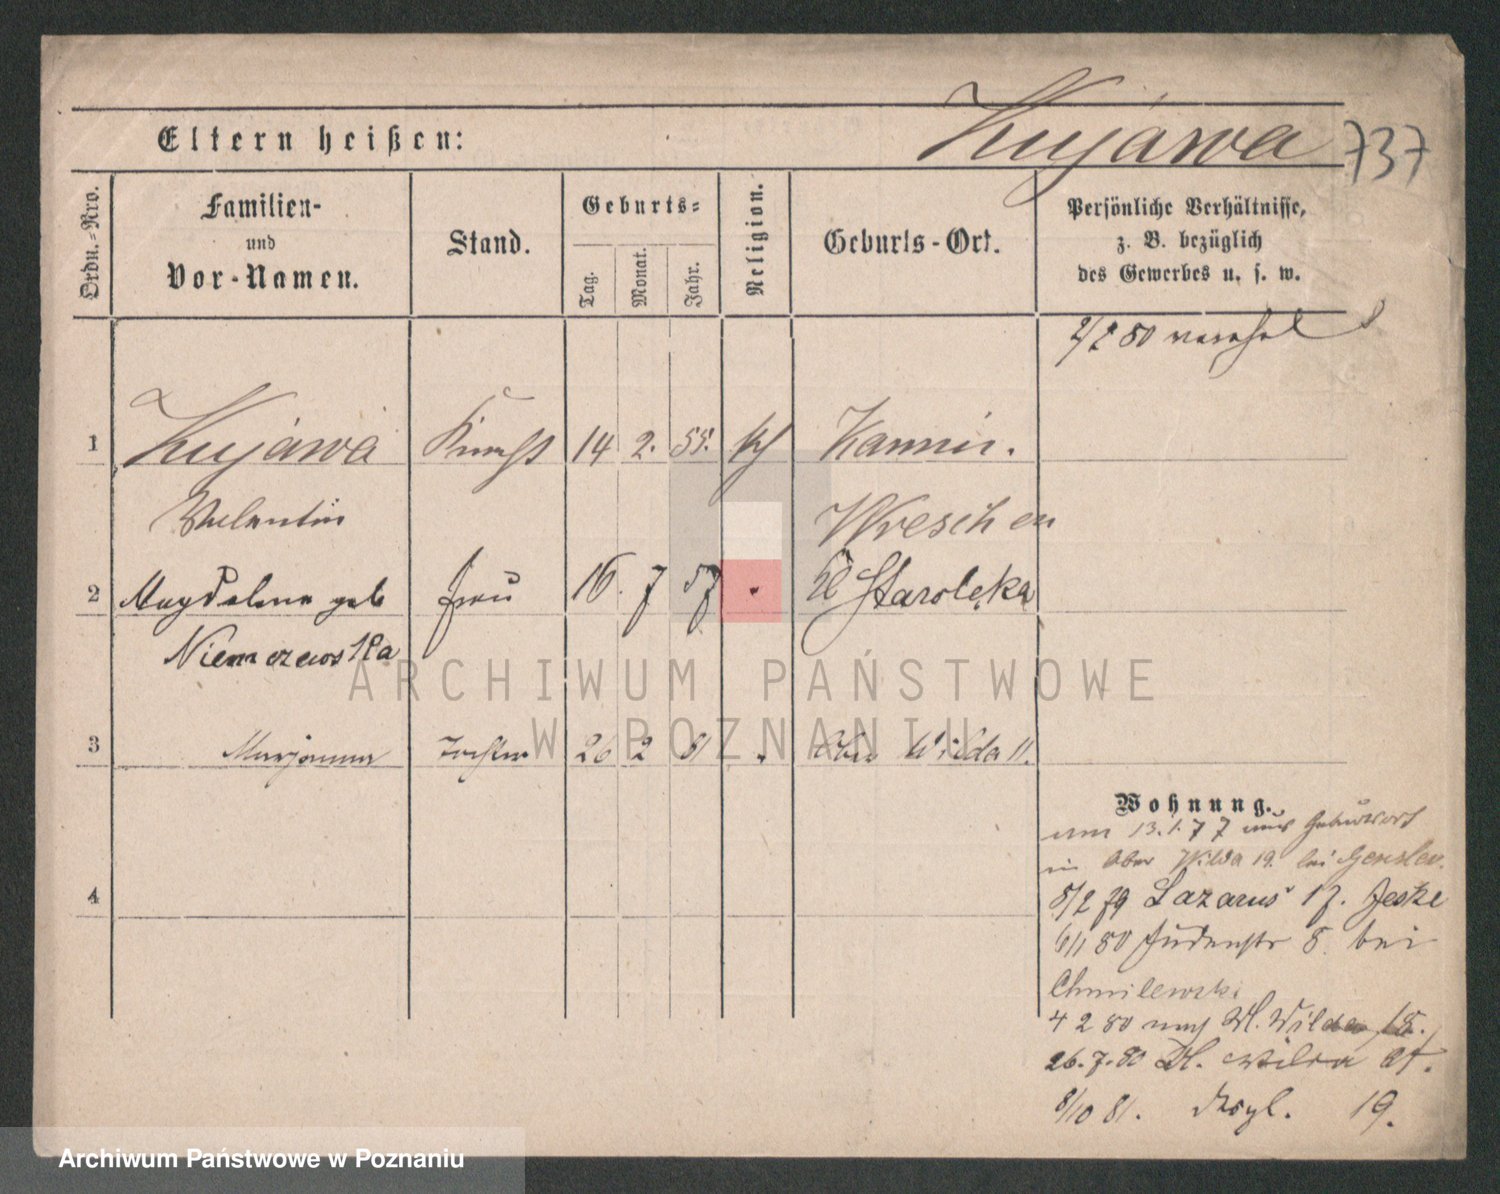 Eltern heißen:
Kujáwa 737
Ordn.-Nro.
Familien-
und
Vor-Namen.
Stand.
Geburts-
Tag.
Monat.
Jahr.
Religion.
Geburts-Ort.
Persönliche Verhältnisse,
z. B. bezüglich
des Gewerbes u. s. w.
1 Kujáwa 14 2. 55. kth
Valentin
Wreschen
2 Magdalena geb Frau 16. 7 57 Kl Starolęka
Niemczewska
3 Marjanna Tochter 26 2 81 Ober Wilda 11.
4
Wohnung.
13.1.77
in Ober Wilda 19. bei Gensler.
8/2 79 Lazarus 17. Jeske
6/1 80 Judenstr 5. bei
Chmilewski
4 2 80 nach Wilda 18.
26.7.80 Wilda 21.
8/10 81. 19.
ARCHIWUM PAŃSTWOWE
W POZNANIU
Archiwum Państwowe w Poznaniu